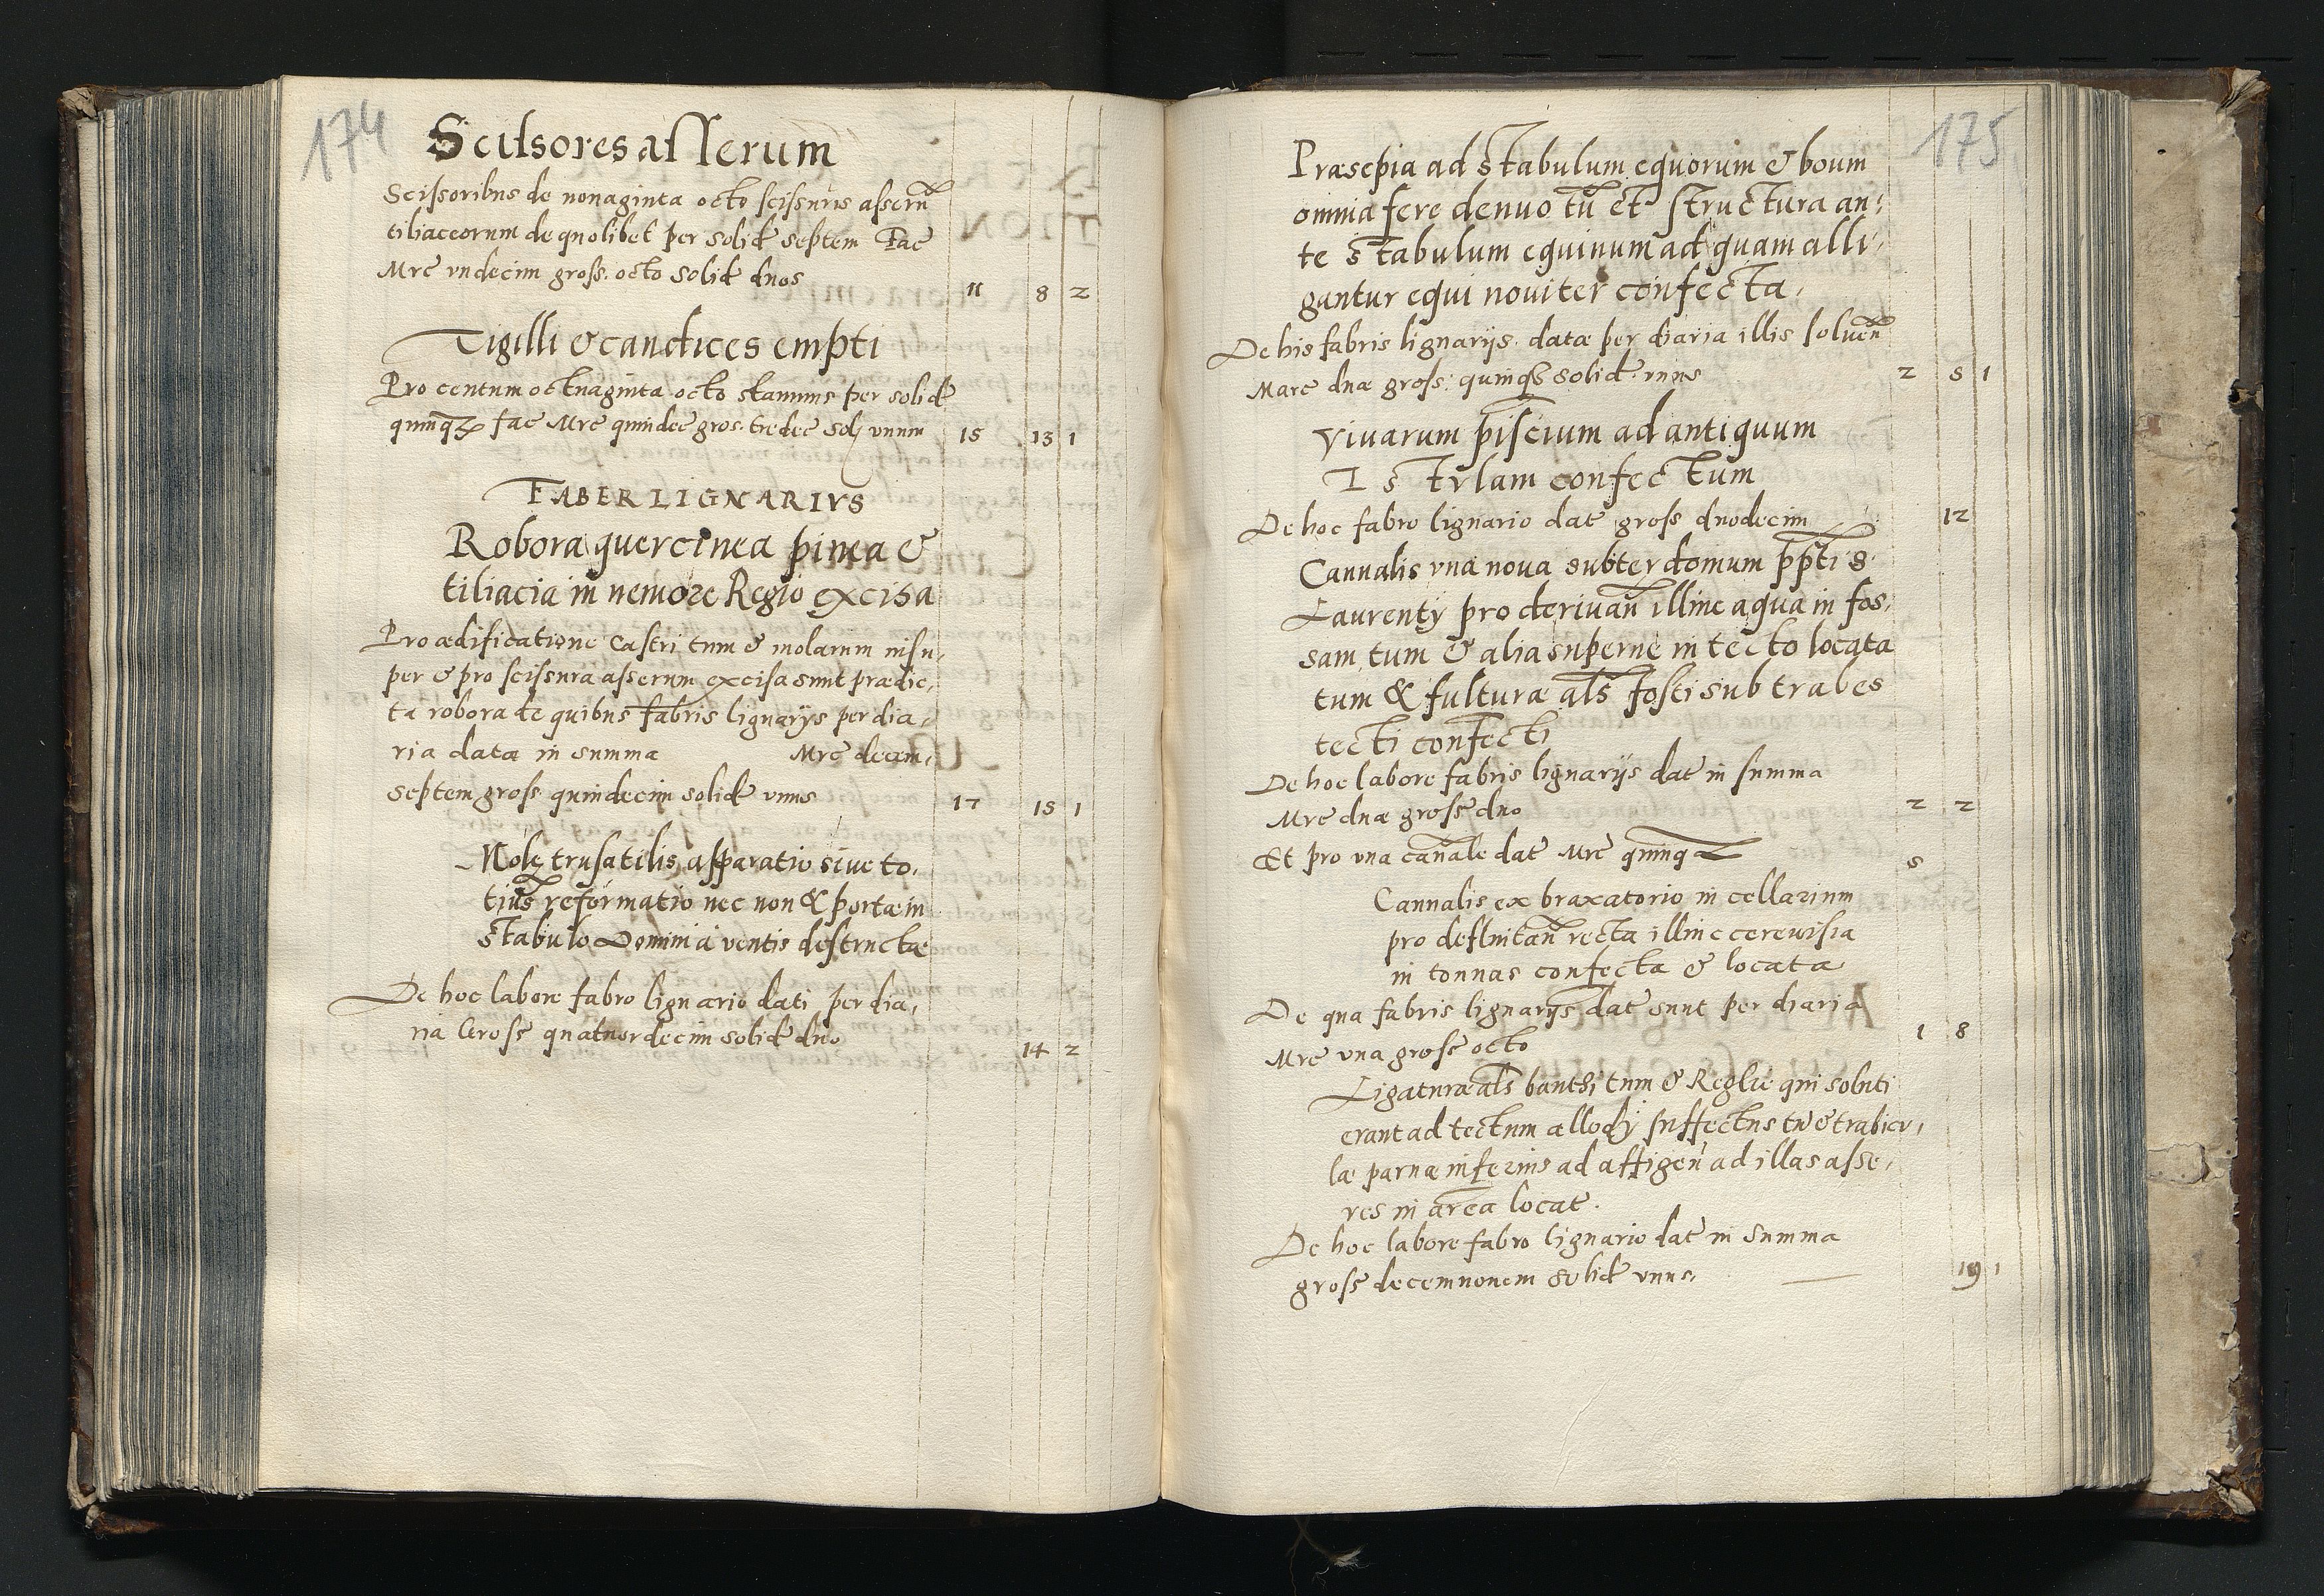 174
Scissores asserum
Scissoribus de nonaginta octo scissuris asserũ
tiliaceorum de quolibet per solid septem Fac
Mrc vndecim gross. octo solid duos 11 8 2
Tigilli & caudices empti
Pro centum octuaginta octo stamms per solid
quinq fac Mrc quindec gros. tredec Sol vnum 15 13 1
FABER LIGNARIVS
Robora quercinea pinea &
tiliacia in nemore Regio excisa
Pro ædificatione Castri tum & molarum insu,
per & pro scissura asserum excisa sunt prædic,
ta robora de quibus fabris lignarijs per dia,
ria datæ in summa Mrc decem,
septem gross quindecim solid vnus 17 15 1
Molę trusatilis apparatio siue to,
tius reformatio nec non & portæ in
stabulo Domini a ventis destructæ
De hoc labore fabro lignario dati per dia,
ria Gross quatuordecim solid duo 14 2
175
Præsepia ad stabulum equorum & boum
omnia fere denuo tũ et structura an,
te stabulum equinum ad quam alli,
gantur equi nouiter confecta,
De his fabris lignarijs datæ per diaria illis soluen̄
Marc duæ gross: quinq solid vnus 2 5 1
Viuarum piscium ad antiquum
Istulam confectum
De hoc fabro lignario dat gross duodecim 12
Cannalis vna noua subter domum ppti S.
Laurenty pro deriuan̄ illinc aqua in fos,
sam tum & alia superne in tecto locata
tum & fulturæ als̃ fosti sub trabes
tecti confecti
De hoc labore fabris lignarijs dat in summa
Mrc duæ gross duo 2 2
Et pro vna canale dat Mrc quinq 5
Cannalis ex braxatorio in cellarium
pro defluitan̄ recta illinc cereuisia
in tonnas confecta & locata
De qua fabris lignarijs dat sunt per diaria
Mrc vna gross octo 1 8
Ligaturæ als banthi tum & Reglie qui soluti
erant ad tectum allody suffectus tũ & trabicu,
læ paruæ inferius ad affigen̄ ad illas asse,
res in area locat.
De hoc labore fabro lignario dat in summa
gross decemnouem solid vnus, 19 1